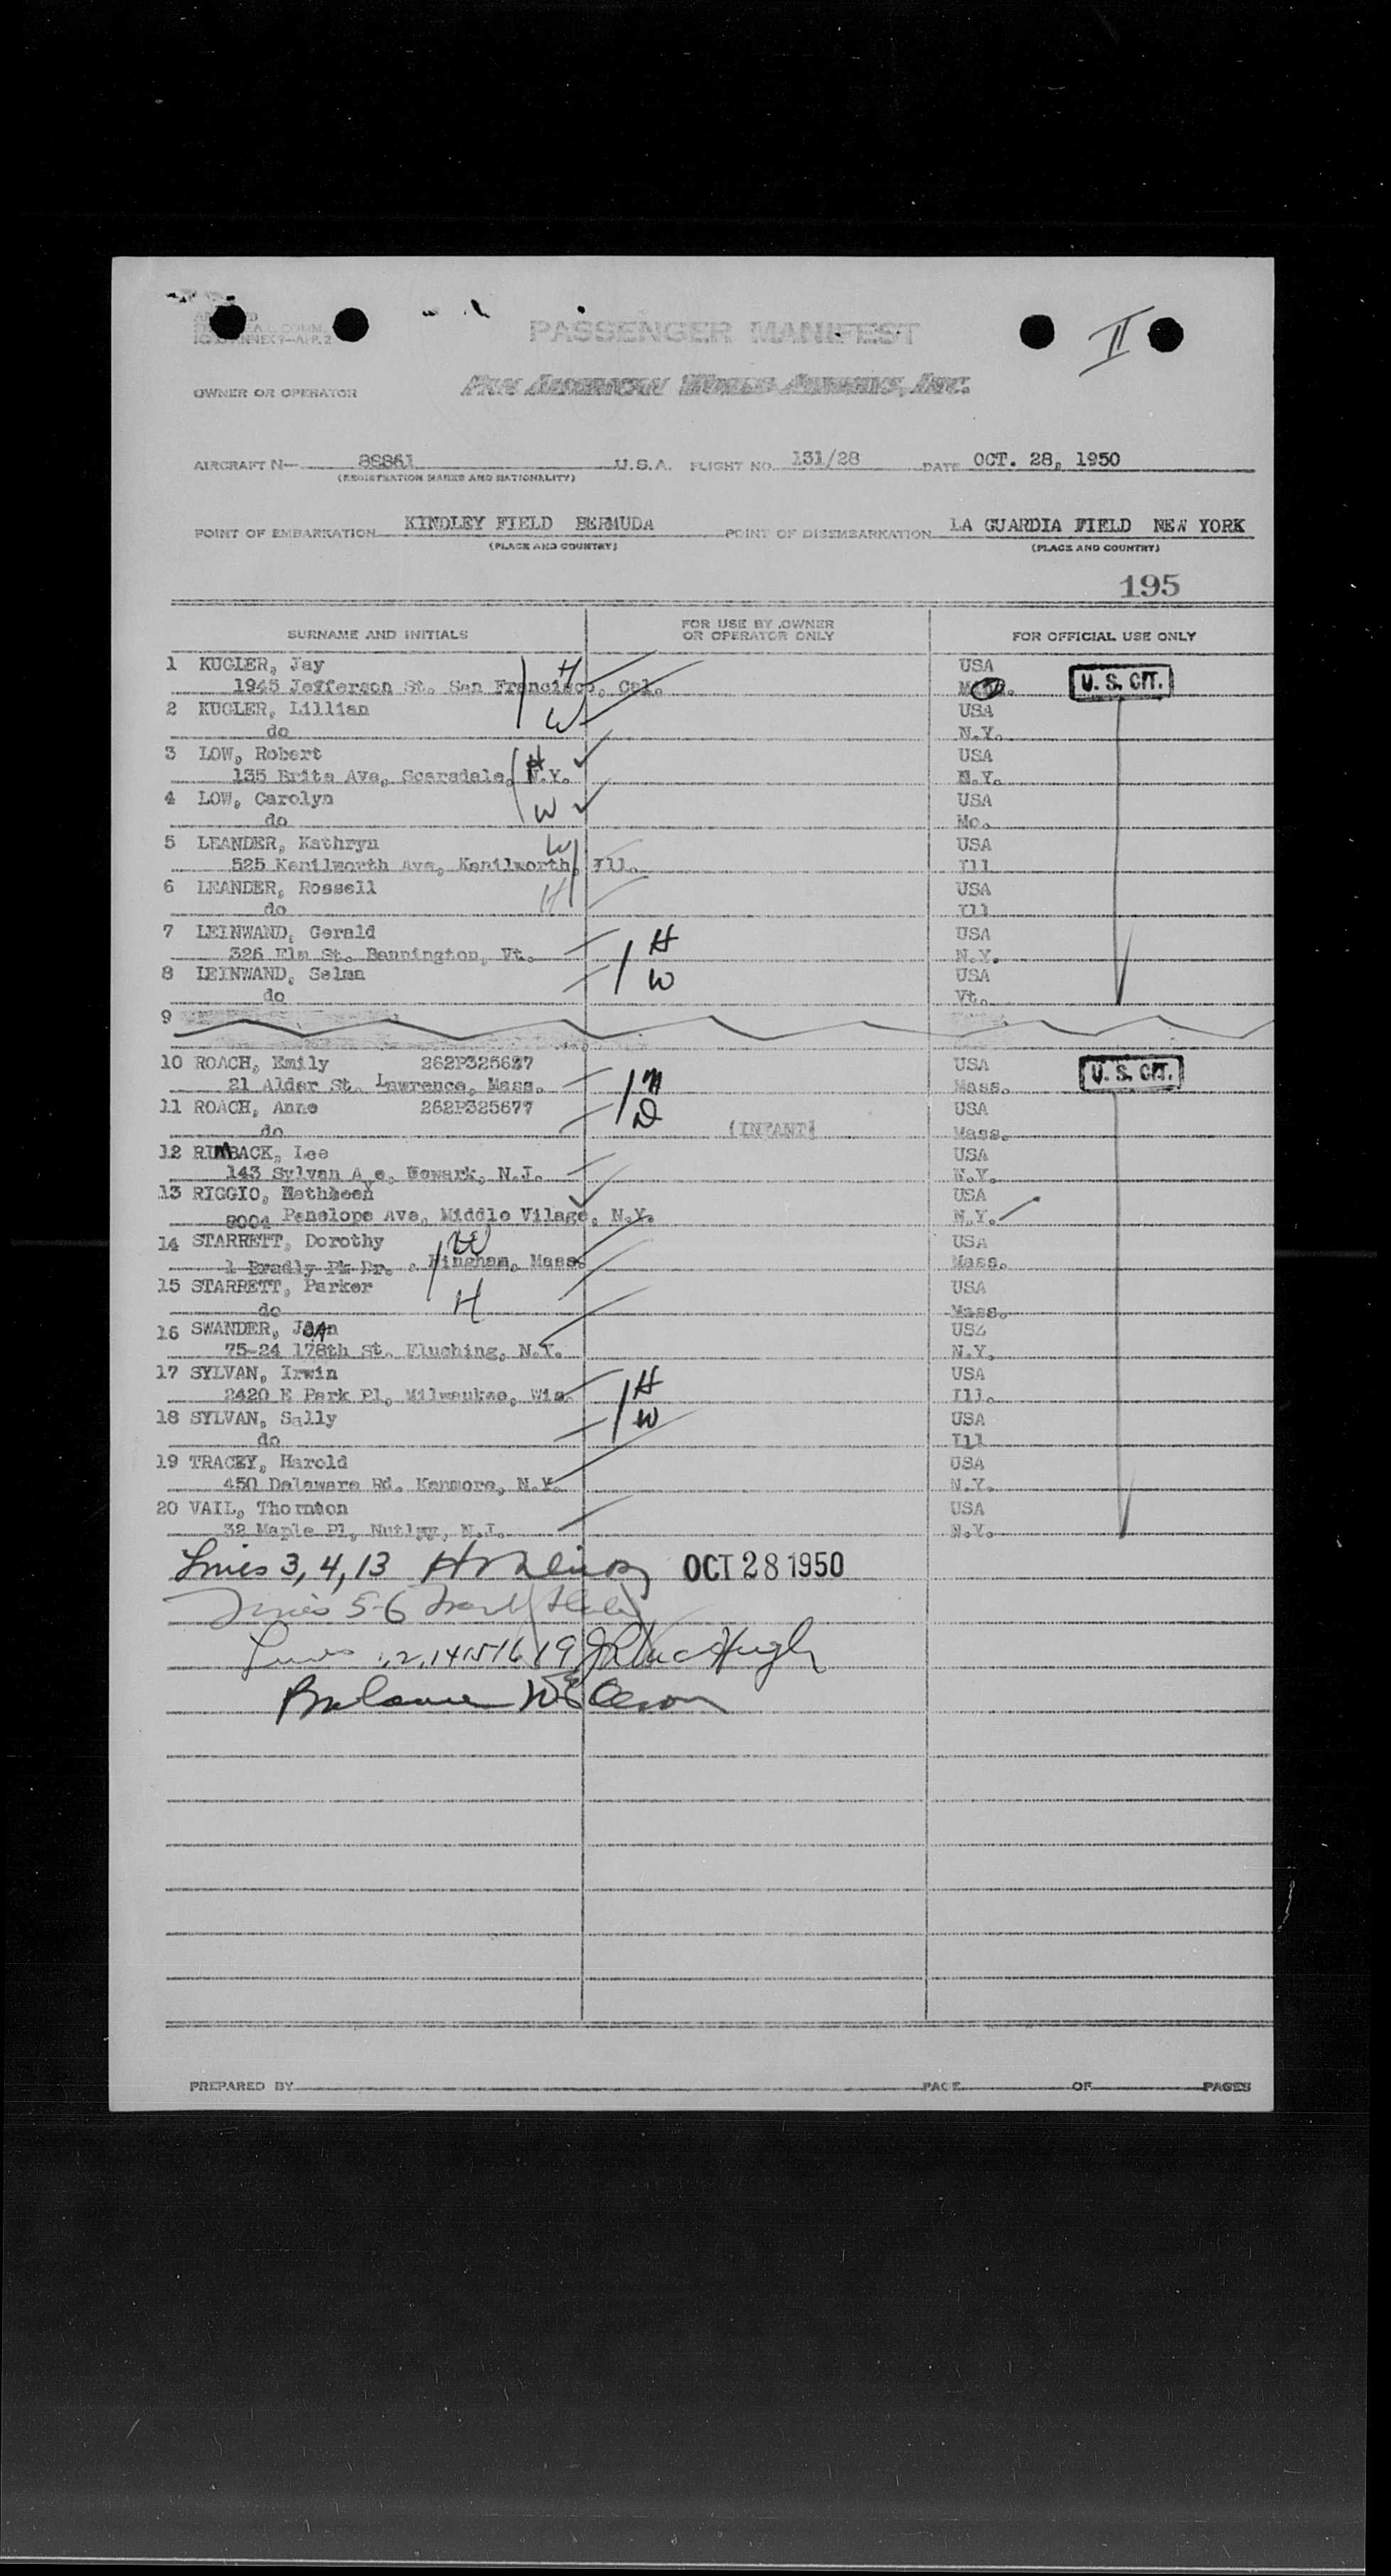 ICAO ANNEX 9-APP. 2
PASSENGER MANIFEST
II
OWNER OR OPERATOR PAN AMERICAN WORLD AIRWAYS, INC.
AIRCRAFT N- 88861 U.S.A. FLIGHT NO. 131/28 DATE OCT. 28, 1950
(REGISTRATION MARKS AND NATIONALITY)
POINT OF EMBARKATION KINDLEY FIELD BERMUDA POINT OF DISEMBARKATION LA GUARDIA FIELD NEW YORK
(PLACE AND COUNTRY) (PLACE AND COUNTRY)
195
SURNAME AND INITIALS FOR USE BY OWNER OR OPERATOR ONLY FOR OFFICIAL USE ONLY
1 KUGLER, Jay H USA U. S. CIT.
1945 Jefferson St. San Francisco, Cal.
2 KUGLER, Lillian W USA
do N.Y.
3 LOW, Robert H USA
135 Brite Ave, Scarsdale, N.Y. N.Y.
4 LOW, Carolyn W USA
do Mo.
5 LEANDER, Kathryn W USA
525 Kenilworth Ave, Kenilworth, Ill. Ill
6 LEANDER, Rossell H USA
do Ill
7 LEINWAND, Gerald H USA
326 Elm St. Bennington, Vt. N.Y.
8 LEINWAND, Selma W USA
do Vt.
9
10 ROACH, Emily 262P325627 M USA U. S. CIT.
21 Alder St. Lawrence, Mass. Mass.
11 ROACH, Anne 262P325677 D USA
do (INFANT) Mass.
12 RUMBACK, Lee USA
143 Sylvan A e, Newark, N.J. N.Y.
13 RIGGIO, USA
8004 Penelope Ave, Middle Vilage, N.Y. N.Y.
14 STARRETT, Dorothy W USA
1 Bradly Pk Dr. Hingham, Mass. Mass.
15 STARRETT, Parker H USA
do Mass.
16 SWANDER, Joan USA
75-24 178th St. Fluching, N.Y. N.Y.
17 SYLVAN, Irwin H USA
2420 E Park Pl, Milwaukee, Wis. Ill.
18 SYLVAN, Sally W USA
do Ill
19 TRACEY, Harold USA
450 Delaware Rd. Kenmore, N.Y. N.Y.
20 VAIL, Thornton USA
32 Maple Pl, Nutley, N.J. N.Y.
Lines 3, 4, 13 OCT 28 1950
Lines 5-6
Lines 1,2,14 15 16 19
Balance
PREPARED BY PAGE OF PAGES